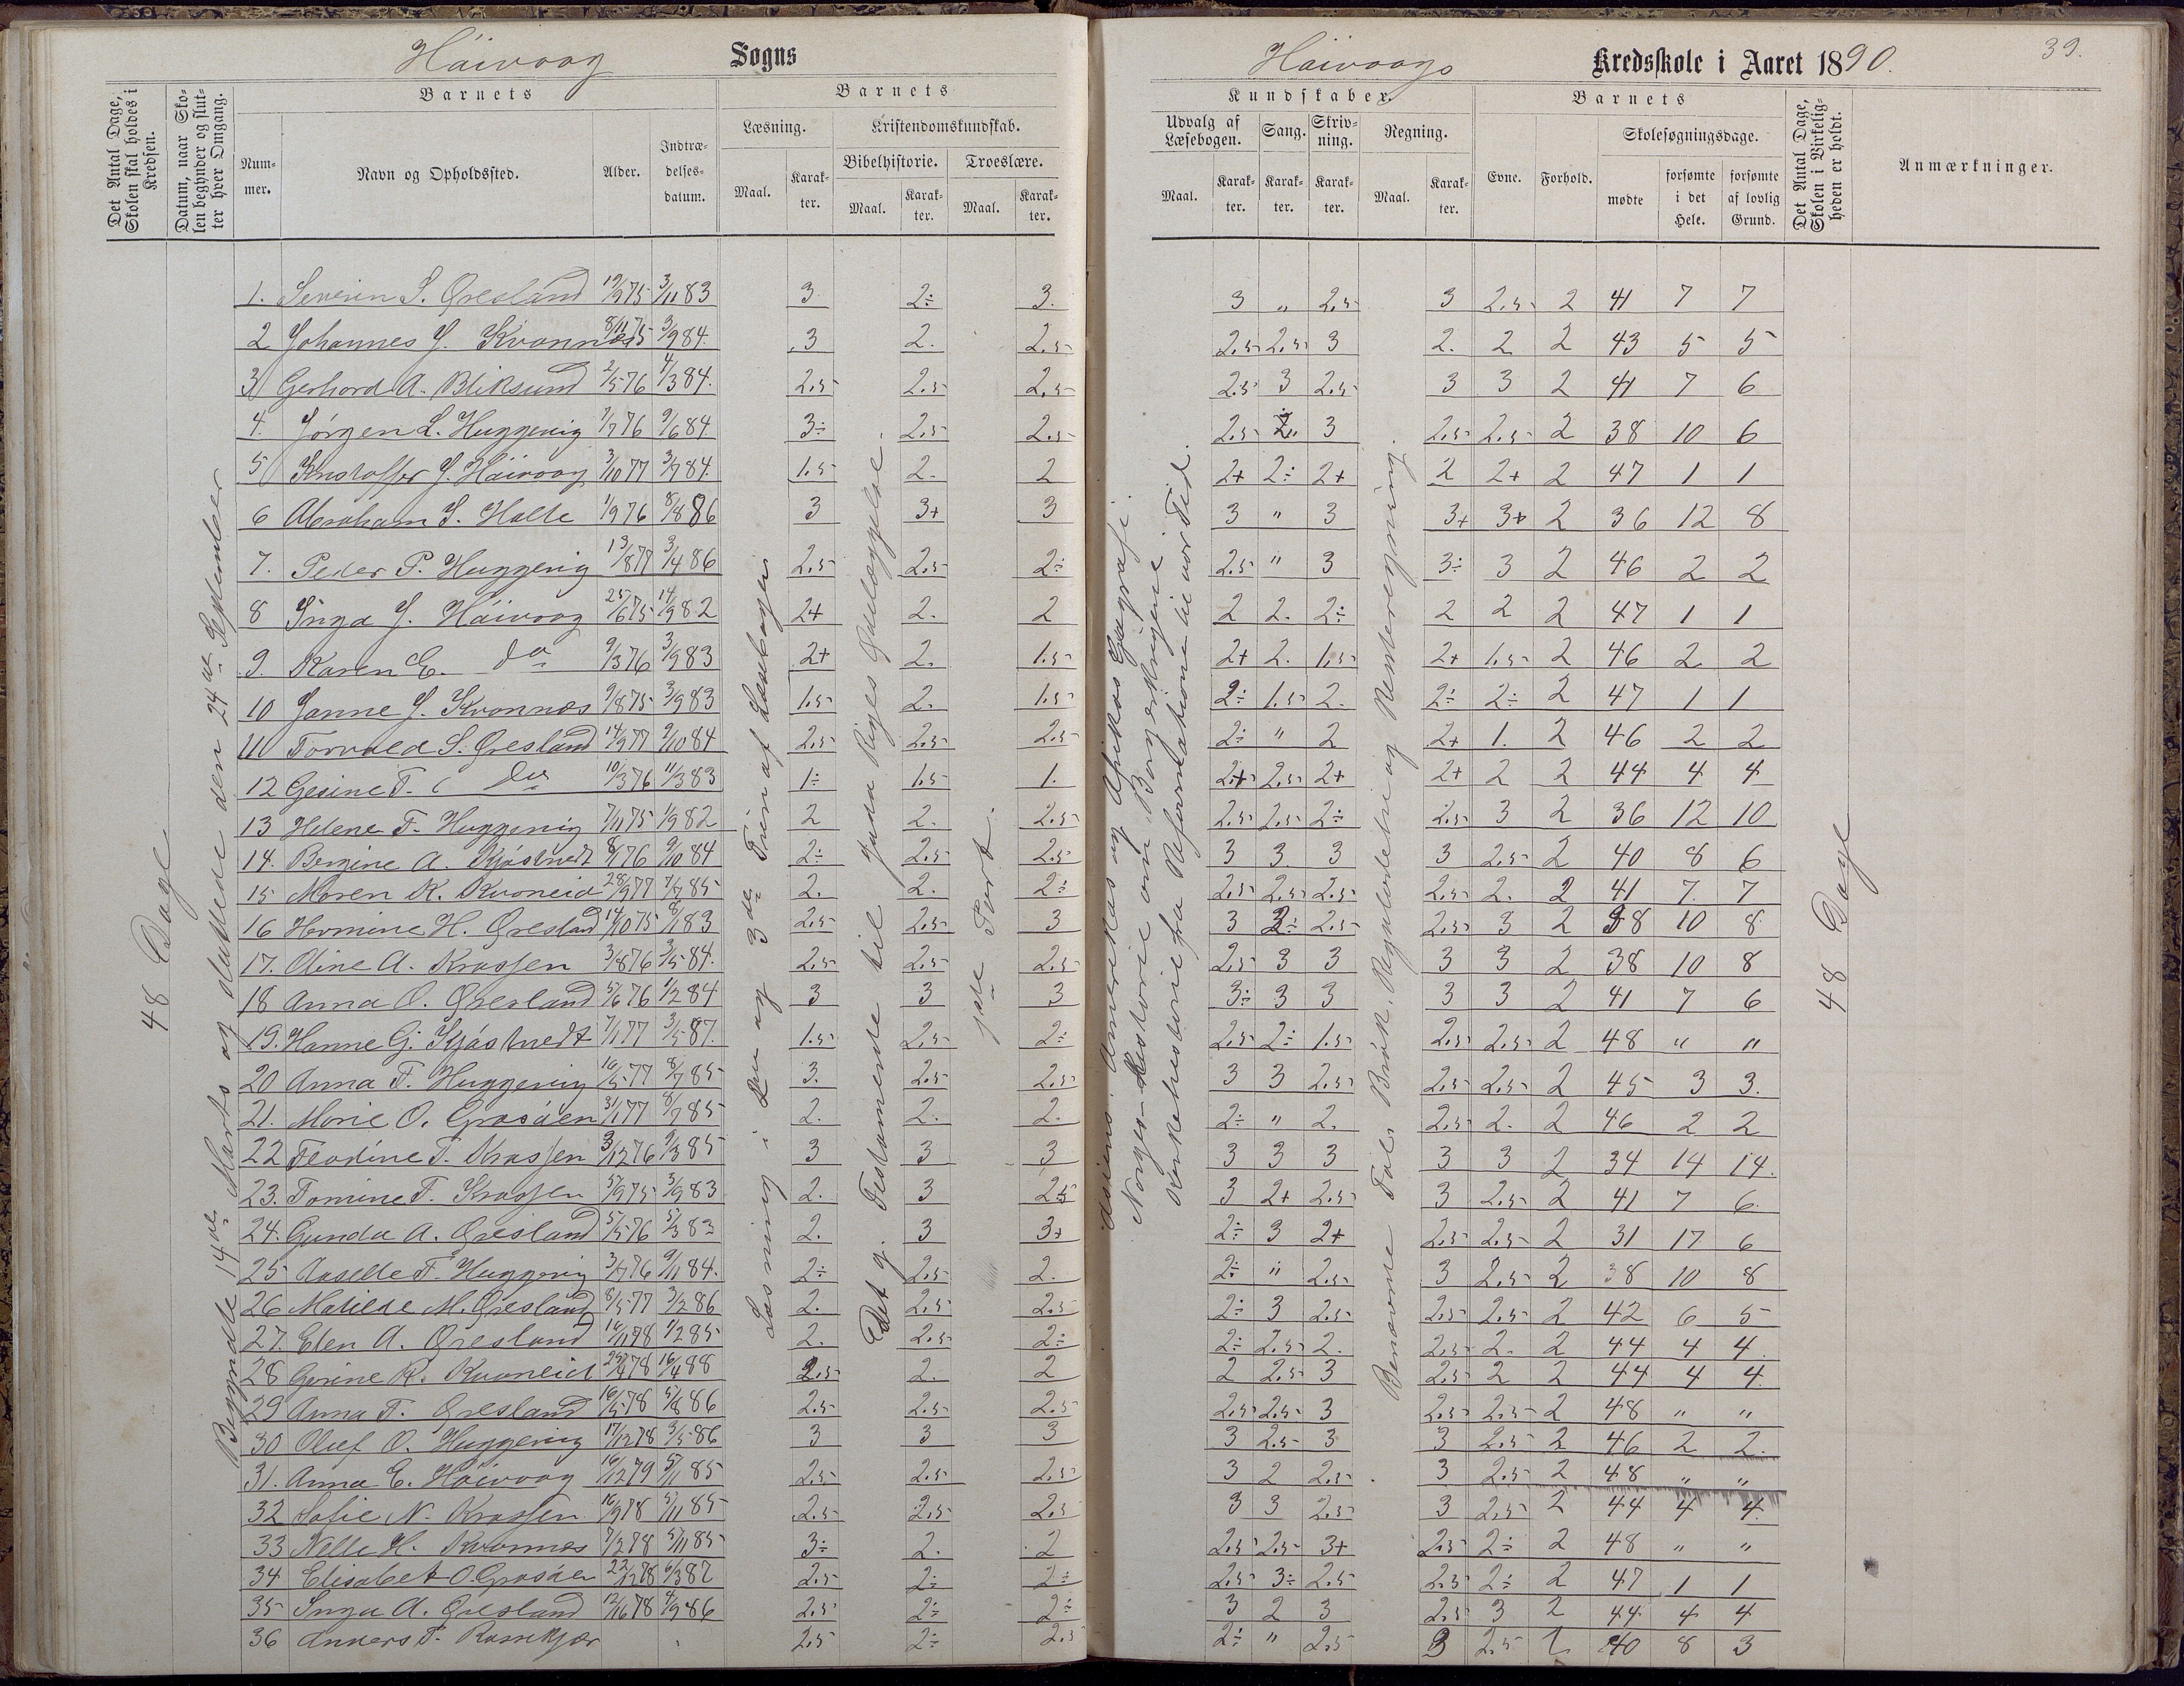 Håivaag Sogns
Det Antal Dage, Skolen skal holdes i Kredsen.
Datum, naar Skolen begynder og slutter hver Omgang.
Barnets
Nummer.
Navn og Opholdssted.
Alder.
Indtrædelses-datum.
Barnets
Læsning.
Maal.
Karakter.
Kristendomskundskab.
Bibelhistorie.
Maal.
Karakter.
Troeslære.
Maal.
Karakter.
Håivaags Kredsskole i Aaret 1890.
39.
Kundskaber.
Udvalg af Læsebogen.
Maal.
Karakter.
Sang.
Karakter.
Skrivning.
Karakter.
Regning.
Maal.
Karakter.
Barnets
Evne.
Forhold.
Skolesøgningsdage.
mødte
forsømte i det Hele.
forsømte af lovlig Grund.
Det Antal Dage, Skolen i Virkeligheden er holdt.
Anmærkninger.
48 Dage
Begyndte 14de Marts og sluttede den 24de September
Læsning i 2den og 3de Trin af Læsebogen
Det g. Testamente til Juda Riges Ødelæggelse.
1ste Part.
Asiens, Amerikas og Afrikas Geografi.
Norges Historie om Borgerkrigene
Verdenshistorie fra Reformationen til vor Tid.
Benævnte Tal. Brøk. Reguladetri og Renteregning.
48 Dage
1. Severin S. Øresland 19/9 75 3/11 83 3 2÷ 3. 3 „ 2.5 3 2.5 2 41 7 7
2 Johannes J. Kvannes 8/11 75 3/9 84. 3 2. 2.5 2.5 2.5 3 2. 2 2 43 5 5
3 Gerhard A. Bliksund 2/5 76 4/3 84. 2.5 2.5 2.5 2.5 3 2.5 3 3 2 41 7 6
4. Jörgen L. Huggenig 7/7 76 9/6 84 3÷ 2.5 2.5 2.5 3 2.5 2.5 2 38 10 6
5 Kristoffer J. Håivaag 3/10 77 3/7 84. 1.5 2. 2 2+ 2÷ 2+ 2 2+ 2 47 1 1
6 Abraham S. Holte 1/9 76 8/8 86 3 3+ 3 3 „ 3 3+ 3+ 2 36 12 8
7. Peder P. Huggenig 13/8 77 3/4 86 2.5 2.5 2÷ 2.5 „ 3 3÷ 3 2 46 2 2
8 Inga J. Håivaag 25/6 75 14/9 82 2+ 2. 2 2 2. 2÷ 2 2 2 47 1 1
9. Karen E. do 9/3 76 3/9 83 2+ 2. 1.5 2+ 2. 1.5 2+ 1.5 2 46 2 2
10 Janne J. Kvannes 9/8 75 3/9 83 1.5 2. 1.5 2÷ 1.5 2. 2÷ 2÷ 2 47 1 1
11 Torvald S. Øresland 14/9 77 9/10 84 2.5 2.5 2.5 2÷ „ 2 2+ 1. 2 46 2 2
12 Gesine T. do 10/3 76 11/3 83 1÷ 1.5 1. 2.5 2+ 2+ 2 2 44 4 4
13 Helene T. Huggenig 7/11 75 1/9 82 2 2. 2.5 2.5 2.5 2÷ 2.5 3 2 36 12 10
14. Bergine A. Kjöstvedt 8/1 76 9/10 84 2÷ 2.5 2.5 3 3 3 3 2.5 2 40 8 6
15 Maren K. Kvaneid 28/9 77 7/7 85 2. 2. 2÷ 2.5 2.5 2.5 2.5 2. 2 41 7. 7
16 Hermine H. Øresland 14/10 75 8/1 83 2.5 2.5 3 3 2÷ 2.5 2.5 3 2 38 10 8
17. Oline A. Krossen 3/8 76 3/5 84. 2.5 2.5 2.5 2.5 3 3 3 3 2 38 10 8
18 Anna O. Øresland 5/6 76 1/2 84 3 3 3 3÷ 3 3 3 3 2 41 7 6
19. Hanne G. Kjöstvedt 7/1 77 3/5 87. 1.5 2.5 2÷ 2.5 2÷ 1.5 2.5 2.5 2 48 „ „
20 Anna T. Huggenig 16/5 77 8/7 85 3. 2.5 2.5 3 3 2.5 2.5 2.5 2 45 3 3.
21. Marie O. Grosåen 31/1 77 8/7 85 2. 2. 2. 2÷ „ 2. 2.5 2. 2 46 2 2
22 Teodine T. Krossen 3/12 76 9/3 85 3 3 3 3 3 3 3 3 2 34 14 14.
23. Tomine T. Krossen 5/9 75 3/9 83 2. 3 2.5 3 2+ 2.5 3 2.5 2 41 7 6.
24. Gunda A. Øresland 5/5 76 5/3 83 2. 3 3+ 2÷ 3 2+ 2.5 2.5 2 31 17 6
25 Aaselle T. Huggenig 3/7 76 9/11 84. 2÷ 2.5 2. 2÷ „ 2.5 3 2.5 2 38 10 8
26 Matilde M. Øresland 8/5 77 3/2 86 2. 2.5 2.5 2÷ 3 2.5 2.5 2.5 2 42 6 5
27. Elen A. Øresland 16/11 78 1/2 85 2. 2.5 2÷ 2÷ 2.5 2. 2.5 2. 2 44 4 4.
28 Gerine K. Kvaneid 78 16/4 88 2.5 2. 2 2 2.5 3 2.5 2 2 44 4 4.
29 Anna T. Øresland 16/5 78 5/8 86 2.5 2.5 2.5 2.5 2.5 3 2.5 2.5 2 48 „ „
30 Oluf O. Huggenig 17/12 78 3/5 86 3 3 3 3 2.5 3 3 2.5 2 46 2 2.
31. Anna E. Håivaag 16/12 79 5/11 85 2.5 2.5 2.5 3 2 2.5 3 2.5 2 48 „ „
32 Sofie N. Krossen 16/9 78 5/11 85 2.5 2.5 2.5 3 3 2.5 3 2.5 2 44 4 4.
33 Nelle H. Kvannes 7/2 78 5/11 85 3÷ 2. 2 2.5 2.5 3+ 2.5 2÷ 2 48 „ „
34 Elisabet O. Grosåen 22/12 78 6/3 87 2.5 2÷ 2÷ 2.5 3÷ 2.5 2.5 2÷ 2 47 1 1
35 Inga A. Øresland 78 4/9 86 2.5 2÷ 2÷ 3 2 3 2.5 3 2 44 4 4
36 Anders T. 2.5 2÷ 2.5 2÷ „ 2.5 3 2.5 2 40 8 3